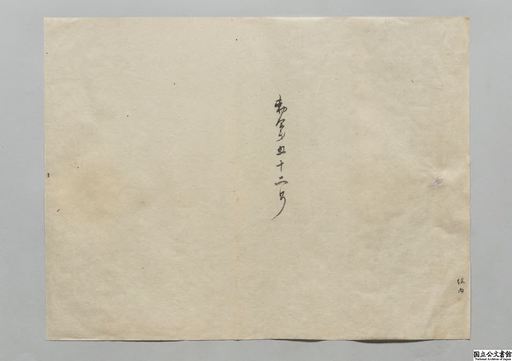 勅令五十二号
国立公文書館
National Archives of Japan